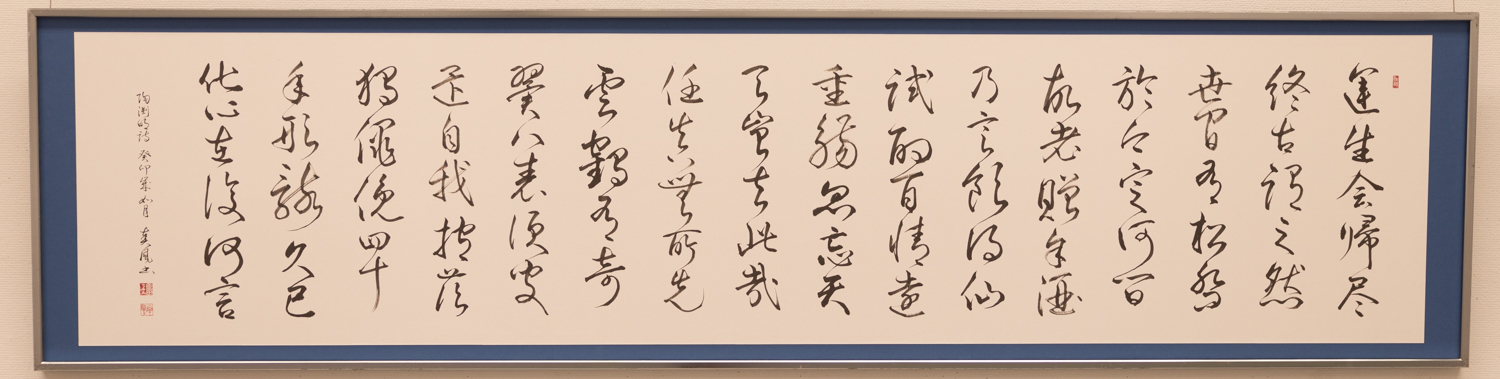 運生会帰尽
終古謂之然
世間有松喬
於今定何聞
故老贈余酒
乃言飲得仙
試酌百情遠
重觴忽忘天
天豈去此哉
任真無所先
雲鶴有奇
翼八表須臾
還自我抱茲
独僶俛四十
年形骸久已
化心在復何言
陶淵明詩 癸卯歳如月